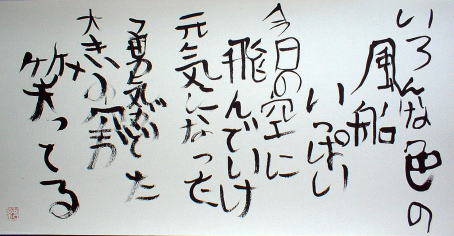 いろんな色の
風船
いっぱい
今日の空に
飛んでいけ
元気になった
勇気がでた
大き
笑ってる